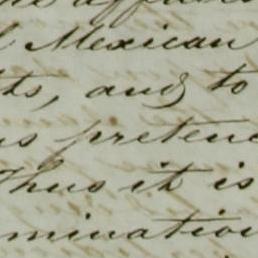 Mexican
ts, and to
s pretenc
Thus it is
mination